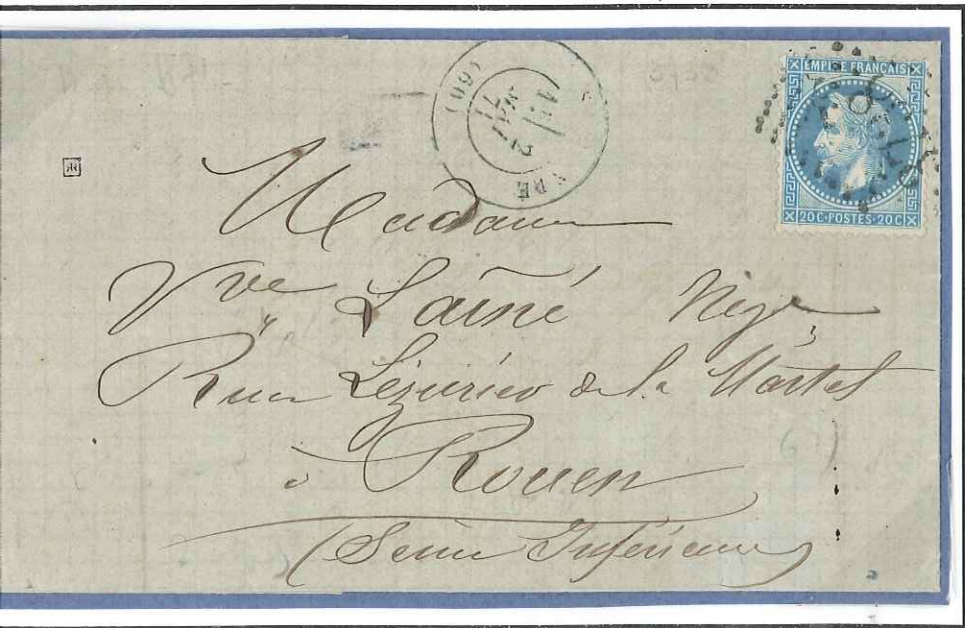 EMPIRE FRANÇAIS
20 C · POSTES · 20 C
(60)
MAI
71
Madame
Vve Laîné Négte
Rue Lézurier de la Martel
à Rouen
(Seine Inférieure)